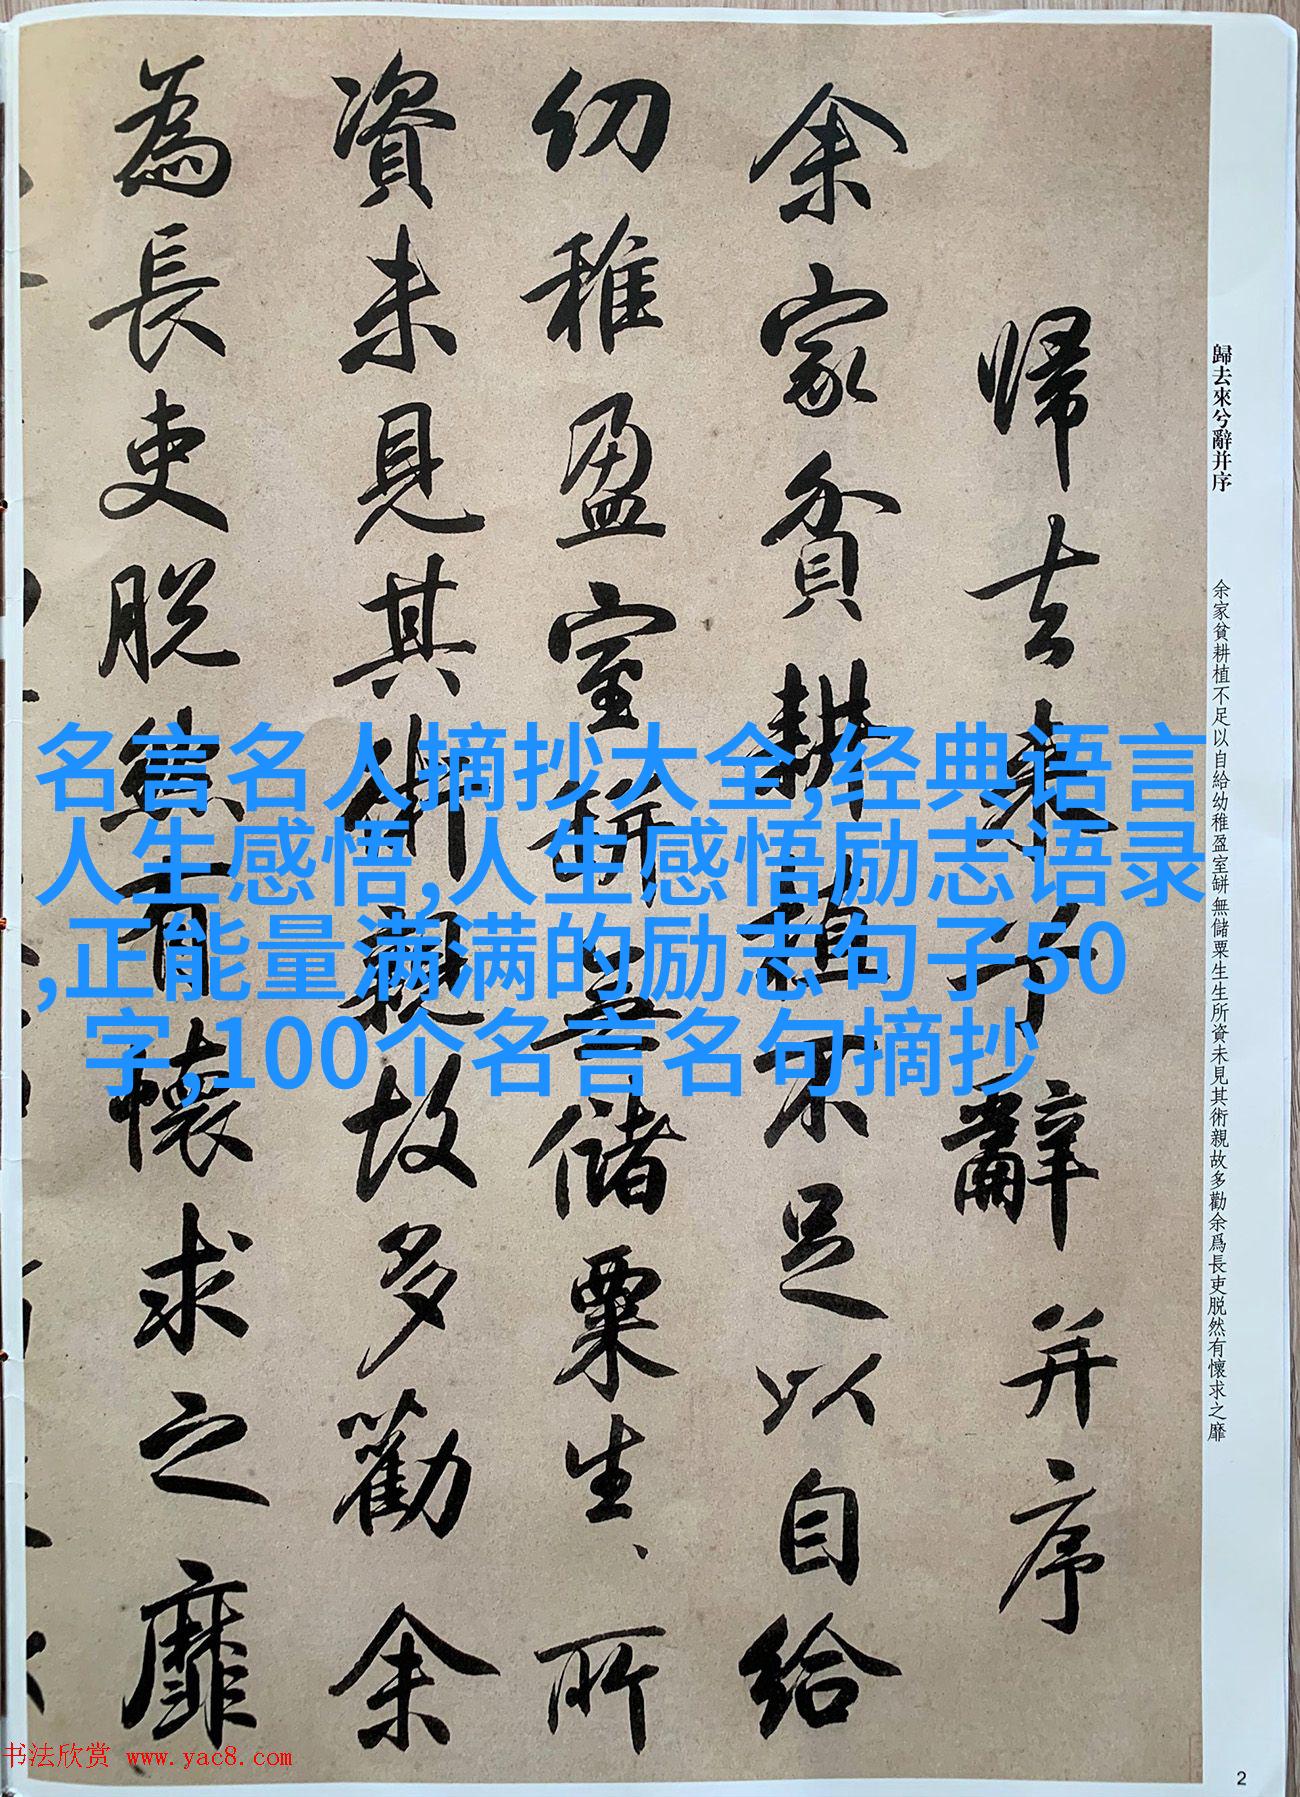 歸去來兮辭并序
余家貧耕植不足以自給
幼稚盈室缾無儲粟生〻所
資未見其術親故多勸余
為長吏脫然有懷求之靡
歸去來兮辭并序
余家貧耕植不足以自給幼稚盈室缾無儲粟生生所資未見其術親故多勸余爲長吏脱然有懷求之靡
名言名人摘抄大全,经典语言
人生感悟,人生感悟励志语录
,正能量满满的励志句子50
字,100个名言名句摘抄
书法欣赏 www.yac8.com
2